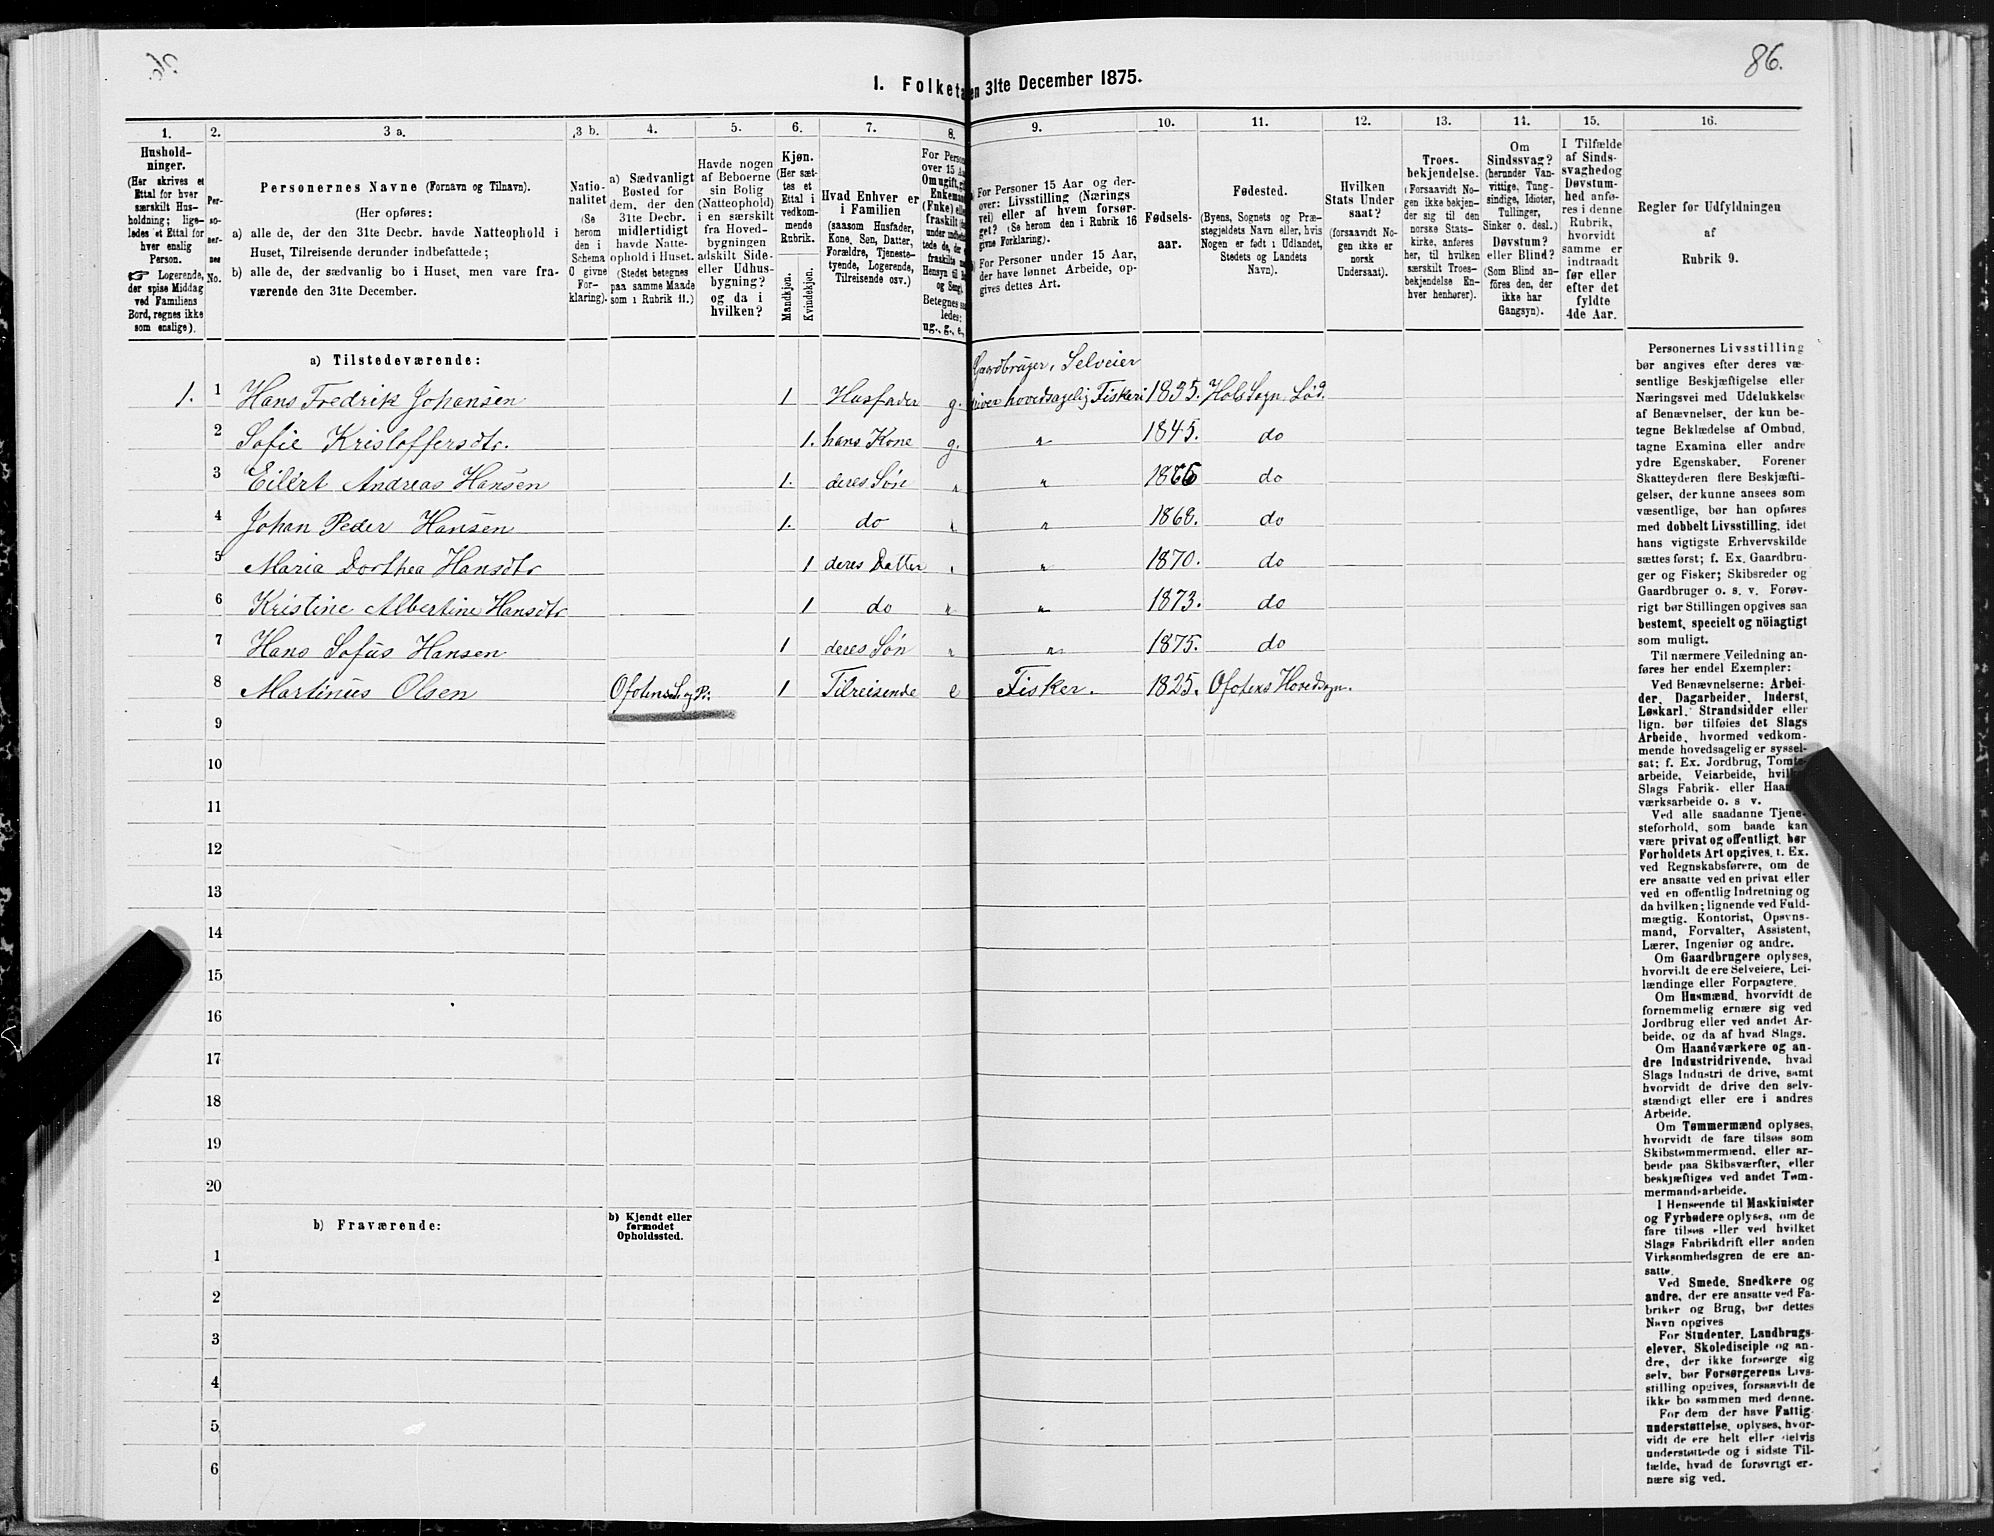 86.
1. Folketa
en 31te December 1875.
1. 2. 3 a. 3 b. 4. 5. 6. 7. 8. 9. 10. 11. 12. 13. 14. 15. 16.
Hushold-
ninger.
(Her skrives et
Ettal for hver
særskilt Hus-
holdning; lige-
ledes et Ettal for
hver enslig
Person.
☞ Logerende,
der spise Middag
ved Familiens
Bord, regnes ikke
som enslige).
Per-
so-
ner-
nes
No.
Personernes Navne (Fornavn og Tilnavn).
(Her opføres:
a) alle de, der den 31te Decbr. havde Natteophold i
Huset, Tilreisende derunder indbefattede;
b) alle de, der sædvanlig bo i Huset, men vare fra-
værende den 31te December.
Natio-
nalitet
(Se
herom
den i
Schema
O givne
For-
klaring).
a) Sædvanligt
Bosted for
dem, der den
31te Decbr.
midlertidigt
havde Natte-
ophold i Huset.
(Stedet betegnes
paa samme Maade
som i Rubrik 11.)
Havde nogen
af Beboerne
sin Bolig
(Natteophold)
i en særskilt
fra Hoved-
bygningen
adskilt Side-
eller Udhus-
bygning?
og da i
hvilken?
Kjøn.
(Her sæt-
tes et
Ettal i
vedkom-
mende
Rubrik.
Mandkjøn.
Kvindekjøn.
Hvad Enhver er
i Familien
(saasom Husfader,
Kone, Søn, Datter,
Forældre, Tjeneste-
tyende, Logerende,
Tilreisende osv.)
For Person
over 15 Aa
Om ugift, gif
Enkeman
(Fnke) elle
fraskilt
under
tede de, der
fraskilte
Hensyn til B
og Seng).
Betegnes saa
ledes:
ug., g., e.,
For Personer 15 Aar og der-
over: Livsstilling (Nærings
vei) eller af hvem forsør-
get? (Se herom den i Rubrik 16
givne Forklaring).
For Personer under 15 Aar,
der have lønnet Arbeide, op-
gives dettes Art.
Fødsels-
aar.
Fødested.
(Byens, Sognets og Præ-
stegjeldets Navn eller, hvis
Nogen er født i Udlandet,
Stedets og Landets
Navn).
Hvilken
Stats Under
saat?
(forsaavidt No-
gen ikke er
norsk
Undersaat).
Troes-
bekjendelse.
(Forsaavidt No-
gen ikke bekjen-
der sig til den
norske Stats-
kirke, anføres
her, til hvilken
særskilt Troes-
bekjendelse En-
hver henhører).
Om
Sindssvag?
(herunder Van-
vittige, Tung-
sindige, Idioter,
Tullinger,
Sinker o. desl.)
Døvstum?
eller Blind?
(Som Blind an-
føres den, der
ikke har
Gangsyn).
I Tilfælde
af Sinds-
svaghed og
Døvstum-
hed anfø-
res i denne
Rubrik,
hvorvidt
samme er
indtraadt
før eller
efter det
fyldte
4de Aar.
Regler for Udfyldningen
af
Rubrik 9.
a) Tilstedeværende:
Gaardbruger, Selveier
1. 1 Hans Fredrik Johansen 1 Husfader g. hovedsagelig Fiskeri 1835. Hols Sogn Lød
2 Sofie Kristoffersdtr. 1. hans Kone g. " 1845. do
3 Eilert Andreas Hansen 1. deres Søn " " 1866 do
4 Johan Peder Hansen 1. do " " 1868. do
5 Maria Dorthea Hansdtr 1 deres Datter " " 1870. do
6 Kristine Albertine Hansdtr 1 do " " 1873. do
7 Hans Sofus Hansen 1 deres Søn " " 1875. do
8 Martinus Olsen Ofotens S. og P: 1 Tilreisende e Fisker. 1825. Ofotens Hovedsogn.
9
10
11
12
13
14
15
16
17
18
19
20
b) Fraværende:
b) Kjendt eller
formodet
Opholdssted.
1
2
3
4
5
6
Personernes Livsstilling
bør angives efter deres væ-
sentlige Beskjæftigelse eller
Næringsvei med Udelukkelse
af Benævnelser, der kun be-
tegne Beklædelse af Ombud,
tagne Examina eller andre
ydre Egenskaber. Forener
Skatteyderen flere Beskjæfti-
gelser, der kunne ansees som
væsentlige, bør han opføres
med dobbelt Livsstilling, idet
hans vigtigste Erhvervskilde
sættes først; f. Ex. Gaardbru-
ger og Fisker; Skibsreder og
Gaardbruger o. s. v. Forøv-
rigt bør Stillingen opgives saa
bestemt, specielt og nöiagtigt
som muligt.
Til nærmere Veiledning an-
føres her endel Exempler:
Ved Benævnelserne: Arbei-
der, Dagarbeider, Inderst,
Løskarl, Strandsidder eller
lign. bør tilføies det Slags
Arbeide, hvormed vedkom-
mende hovedsagelig er syssel-
sat; f. Ex. Jordbrug, Tomte-
arbeide, Veiarbeide, hvil
Slags Fabrik- eller Haan
værksarbeide o. s v.
Ved alle saadanne Tjene-
steforhold, som baade kan
være privat og offentligt, bør
Forholdets Art opgives, t. Ex.
ved Regnskabsførere, om de
ere ansatte ved en privat eller
ved en offentlig Indretning og
da hvilken; lignende ved Fuld-
mægtig, Kontorist, Opsyns-
mand, Forvalter, Assistent,
Lærer, Ingeniør og andre.
Om Gaardbrugere oplyses,
hvorvidt de ere Selveiere, Lei-
lændinge eller Forpagtere.
Om Husmænd, hvorvidt de
fornemmelig ernære sig ved
Jordbrug eller ved andet Ar-
beide, og da af hvad Slags.
Om Haandværkere og an-
dre Industridrivende, hvad
Slags Industri de drive, samt
hvorvidt de drive den selv-
stændigt eller ere i andres
Arbeide.
Om Tømmermænd oplyses,
hvorvidt de fare tilsøs som
Skibstømmermænd, eller ar-
beide paa Skibsværfter, eller
beskjæftiges ved andet Tøm-
mermandsarbeide.
I Henseende til Maskinister
og Fyrbødere oplyses, om de
fare tilsøs eller ved hvilket
Slags Fabrikdrift eller anden
Virksomhedsgren de ere an-
satte.
Ved Smede, Snedkere og
andre, der ere ansatte ved Fa-
briker og Brug, bør dettes
Navn opgives
For Studenter, Landbrugs-
elever, Skoledisciple og an-
dre, der ikke forsørge sig
selv, bør Forsørgerens Livs-
stilling opgives, forsaavidt de
ikke bo sammen med denne.
For dem der have Fattig-
understøttelse, oplyses, hvor-
vidt de ere helt eller delvis
understøttede og i sidste Til-
fælde, hvad de forøvrigt er-
nære sig ved.